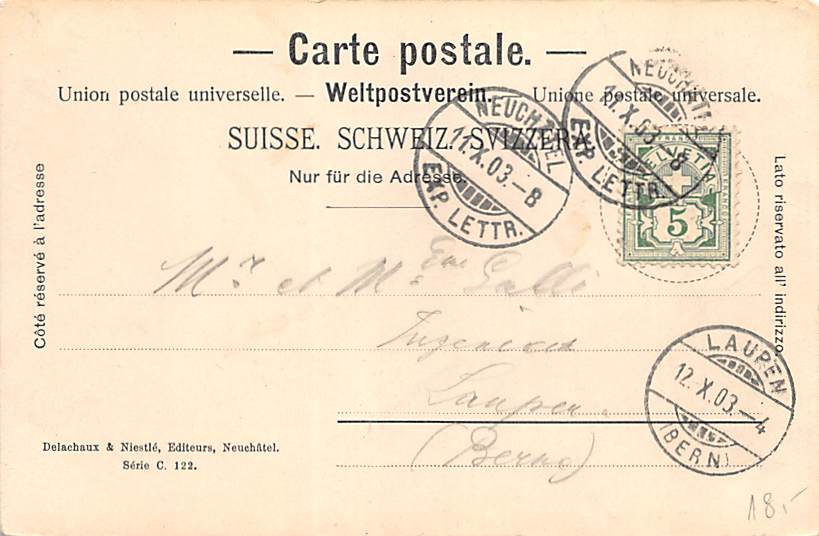 — Carte postale. —
Union postale universelle. — Weltpostverein. — Unione postale universale.
SUISSE. SCHWEIZ. SVIZZERA.
Nur für die Adresse.
Côté réservé à l'adresse
Lato riservato all' indirizzo.
NEUCHATEL
11.X.03.–8
EXP. LETTR.
NEUCHATEL
11.X.03.–8
EXP. LETTR.
FRANCO
HELVETIA
5
Mr. et Me
Ingénieur
Laupen.
(Berne)
LAUPEN
12.X.03.–4
(BERN)
Delachaux & Niestlé, Editeurs, Neuchâtel.
Série C. 122.
18.-